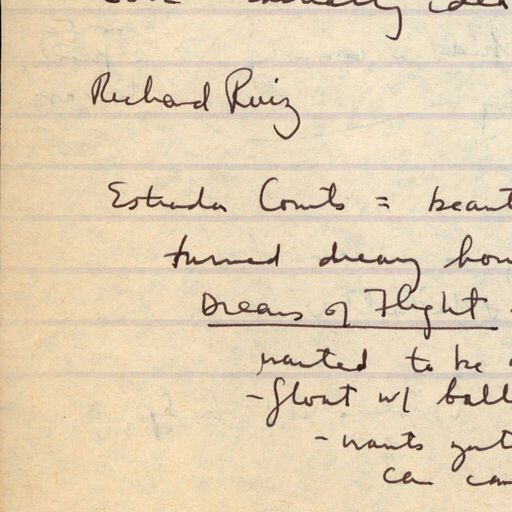 Richard Ruiz
Estrada Courts = beaut
turned dreary hou
Dreams of Flight
wanted to be a
- float w/ ball
- wants
can can